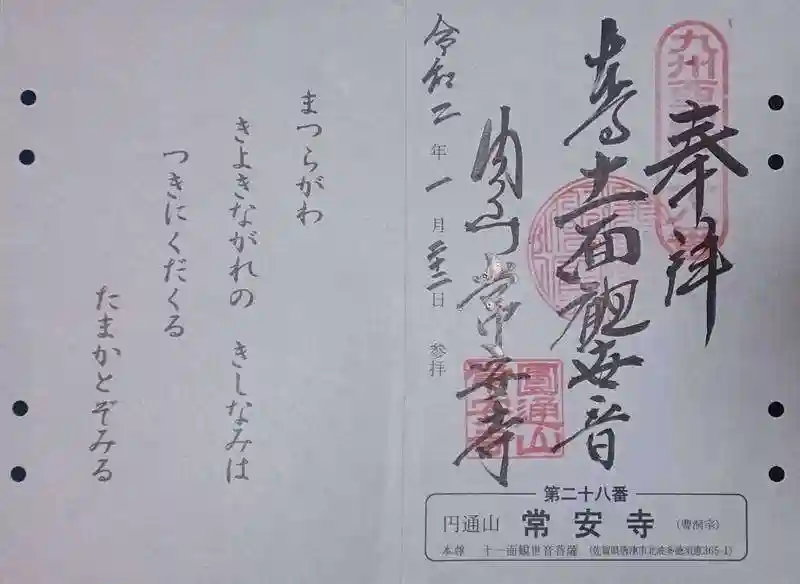 奉拝
十一面観世音
円通山常安寺
令和二年一月二十二日 参拝
圓通山
第二十八番
円通山 常安寺 (曹洞宗)
本尊 十一面観世音菩薩 (佐賀県唐津市北波多徳須恵365-1)
まつらがわ
きよきながれの きしなみは
つきにくだくる
たまかとぞみる